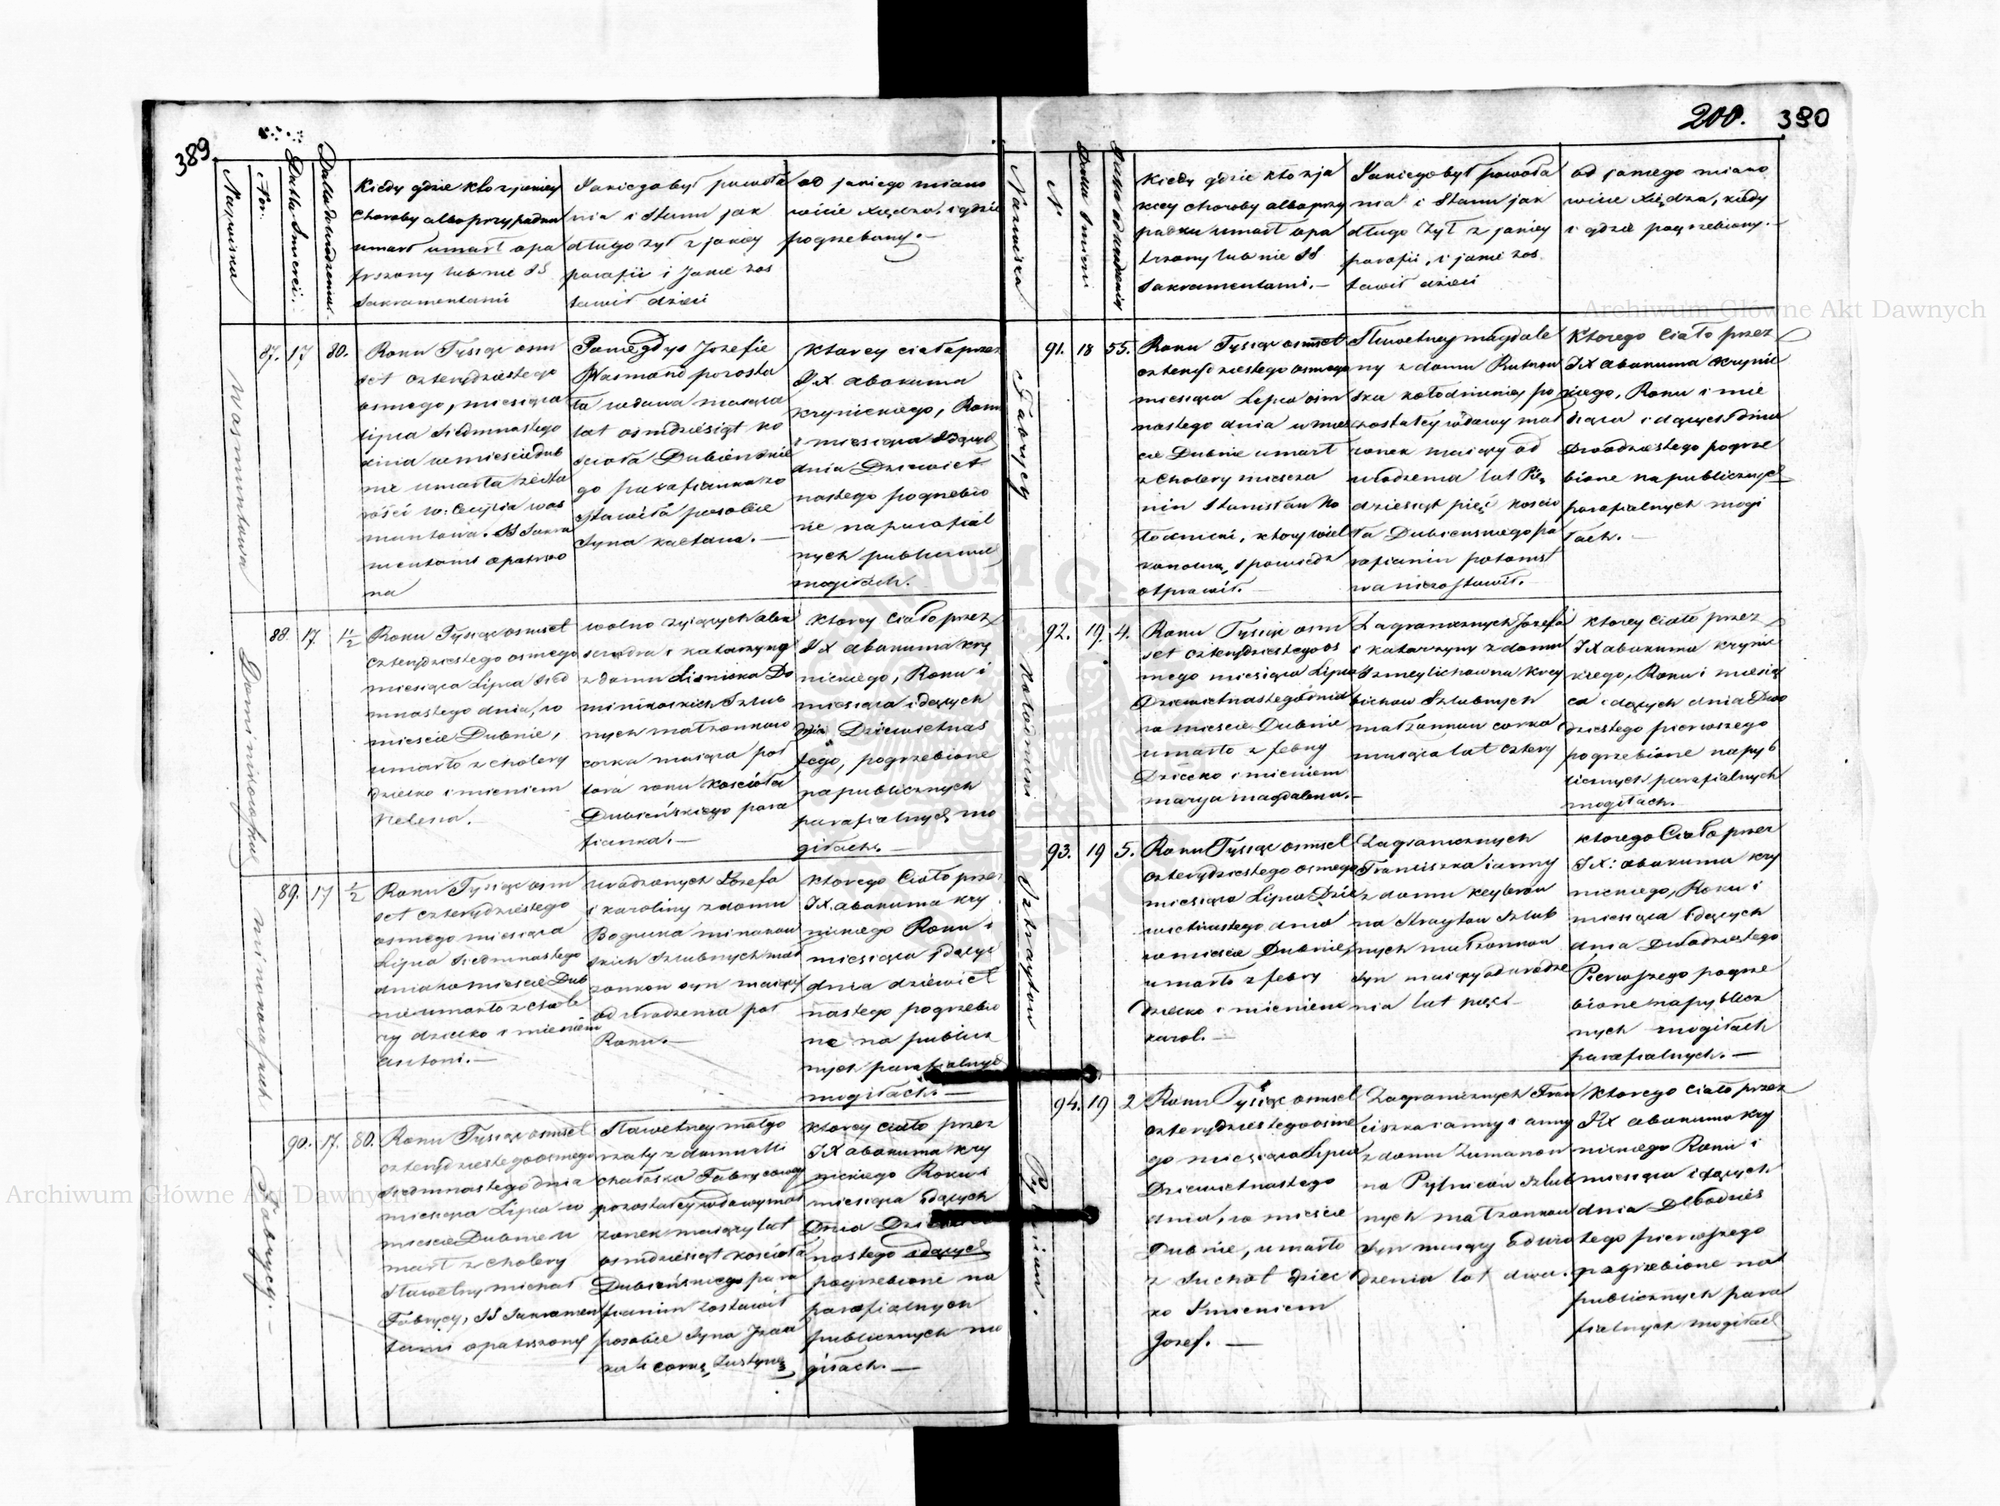 389
Nazwiska
Nor.
Datta Smierci.
Datta urodzenia.
Kiedy gdzie kto z janiey
Choroby albo przypadku
umarł umarł opa
trzony lub nie SS
Sakramentami
Janiego był powoła
nia i Stanu jak
długo żył z janiey
parafii i Janie zos
tawił dzieci
od janiego miano
wicie Xiędza, i gdzie
pogrzebany.—
87. 17 80.
Roku Tysiąc osm
set czterydziestego
osmego, miesiąca
lipca Siedmnastego
dnia w miescie Dub
nie umarła ze sta
rości w: Cecylia Was
muntowa. SS Sakra
mentami opatrzo
na
Pamegdys Jozefie
Wasmand pozosta
ła wdowa mająca
lat osmdziesiąt ko
scioła Dubieńskie
go parafianka zo
stawiła po sobie
Syna Kaetana.—
Ktorey ciało przez
JX abakuma
Krynickiego, Roku
i miesiąca idących
dnia Dziewięt
nastego pogrzebio
ne na parafial
nych publicznych
mogiłach.
88. 17. 1½
Roku Tysiąc osmset
Czterydziestego osmego
miesiąca Lipca Sied
mnastego dnia, w
miescie Dubnie,
umarło z cholery
dziecko imieniem
Helena.—
wolno żyjących Alex
sandra i Katarzyny
z domu Lisnicka Do
minikoskich Szlub
nych małżonkow
corka mająca poł
tora roku Kościoła
Dubieńskiego para
fianka.—
Ktorey Ciało przez
JX abakuma Kry
nickiego, Roku i
miesiąca idących
dnia Dziewietnas
tego, pogrzebione
na publicznych
parafialnych mo
giłach.—
89. 17 ½
Roku Tysiąc osm
set czterydziestego
osmego miesiąca
Lipca Siedmnastego
dnia w miescie Dub
nie umarło z chole
ry dziecko imieniem
Antoni.—
urodzonych Jozefa
i Karoliny z domu
Bogucka
Szlubnych mał
żonkow syn maiący
od urodzenia poł
Roku.—
Ktorego Ciało przez
JX. abakuma Kry
nickiego Roku i
miesiąca idących
dnia dziewięt
nastego pogrzebio
ne na publicz
nych parafialnych
mogiłach.—
Fabrycy.—
90. 17. 80.
Roku Tysiąc osmset
czterydziestego osmego
Siedmnastego dnia
miesiąca Lipca w
miescie Dubnie u
marł z cholery
Sławetny michał
Fabrycy, SS Sakramen
tami opatrzony
Sławetney małgo
rzaty z domu Mi
chalska Fabrycowey
pozostałey wdowy mał
żonek maiący lat
osmdziesiąt kościoła
Dubieńskiego para
fianin zostawił
po sobie Syna
i corkę Justynę
Ktorey ciało przez
JX abakuma Kry
nickiego Roku i
miesiąca idących
Dnia
nastego idących
pogrzebione na
parafialnych
publicznych mo
giłach.—
200. 390
Nazwiska
N
Kiedy gdzie kto z ja
kiey choroby albo przy
padku umarł opa
trzony lub nie SS
Sakramentami.—
Janiego był powoła
nia i Stanu jak
długo żył z janiey
parafii, i janie zos
tawił dzieci
od janiego miano
wicie Xiędza, kiedy
i gdzie pogrzebiony.—
Fabrycy
91. 18 55.
Roku Tysiąc osmset
czterydziestego osmego
miesiąca Lipca osm
nastego dnia w mies
cie Dubnie umarł
z Cholery miesza
nin Stanisław Ko
łodnicki, ktory wiel
kanocną spowiedz
otprawił.—
Sławetney magdale
ny z domu
ska kołodnickiey po
zostałey wdowy mał
żonek maiący od
urodzenia lat Pię
dziesiąt pięć koscio
ła Dubienskiego pa
rafianin potomst
wa niezostawił.
Ktorego Ciało przez
JX abakuma Krynic
kiego, Roku i mie
siąca idących Dnia
Dwadziestego pogrze
bione na publicznych
parafialnych mogi
łach.—
Kołodnicki
92. 19. 4.
Roku Tysiąc osm
set czterydziestego os
mego miesiąca Lipca
Dziewietnastego dnia
w miescie Dubnie
umarło z febry
Dziecko imieniem
marya magdalena.—
Zagranicznych Jozefa
i Katarzyny z domu
Szmeylichowna Krey
bichow Szlubnych
małżonkow corka
maiąca lat cztery
Ktorey ciało przez
JX abakuma Krynic
kiego, Roku i miesią
ca idących dnia Dwa
dziestego pierwszego
pogrzebione na pub
licznych parafialnych
mogiłach.—
93. 19 5.
Roku Tysiąc osmset
czterydziestego osmego
miesiąca Lipca Dzie
wietnastego dnia
w miescie Dubnie,
umarło z febry
Dziecko imieniem
Karol.—
Zagranicznych
Franciszka i anny
z domu Keybrow
na Sztraytow Szlub
nych małżonkow
Syn maiący od urodze
nia lat pięć.—
Ktorego Ciało przez
JX: abakuma Kry
nickiego, Roku i
miesiąca idących
dnia Dwadziestego
Pierwszego pogrze
bione na publicz
nych mogiłach
parafialnych.—
94. 19 2
Roku Tysiąc osmset
czterydziestego osme
go miesiąca Lipca
Dziewietnastego
dnia, w miescie
Dubnie, umarło
z Suchot dziec
ko Imieniem
Jozef.—
Zagranicznych Fran
ciszka i anny i anny
z domu Zumanow
na Szlub
nych małżonkow
Syn maiący od uro
dzenia lat dwa.
Ktorego ciało przez
JX abakuma Kry
nickiego Roku i
miesiąca idących
dnia Dwadzies
tego pierwszego
pogrzebione na
publicznych para
fialnych mogiłach
Archiwum Główne Akt Dawnych
Archiwum Główne Akt Dawnych